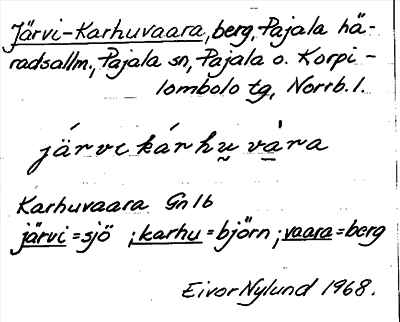 Järvi-Karhuvaara, berg, Pajala hä-
radsallm., Pajala sn, Pajala o. Korpi-
lombolo tg, Norrb. l.
járvikárhu̮và̠ra
Karhuvaara Gn 1b
järvi = sjö ; karhu = björn ; vaara = berg
Eivor Nylund 1968.